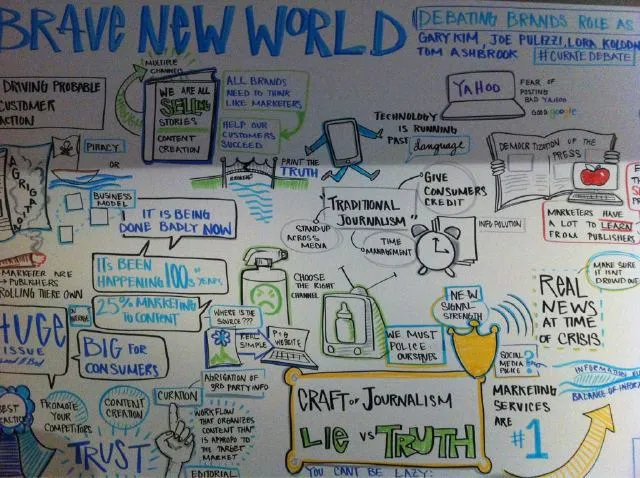 BRAVE NEW WORLD
DEBATING BRANDS ROLE AS
GARY KIM, JOE PULIZZI, LORA KOLODN
TOM ASHBROOK
#CURATEDEBATE
DRIVING PROBABLE
CUSTOMER
ACTION
MULTIPLE
CHANNEL
WE ARE ALL
SELLING
STORIES
CONTENT
CREATION
ALL BRANDS
NEED TO THINK
LIKE MARKETERS
HELP OUR
CUSTOMERS
SUCCEED
PRINT THE
TRUTH
TECHNOLOGY
IS RUNNING
PAST
language
YAHOO
FEAR OF
POSTING
BAD YAHOO
GOOD google
DEMOCRITIZATION OF THE
PRESS
MARKETERS HAVE
A LOT TO LEARN
FROM PUBLISHERS
PIRACY
OR
BUSINESS
MODEL
IT IS BEING
DONE BADLY NOW
"TRADITIONAL
JOURNALISM"
GIVE
CONSUMERS
CREDIT
STAND UP
ACROSS
MEDIA
TIME
MANAGEMENT
INFO POLUTION
MAKE SURE
IT ISNT
DROWND OUT
REAL
NEWS
AT TIME
OF CRISIS
MARKETER ARE
PUBLISHERS
ROLLING THERE OWN
IT'S BEEN
HAPPENING 100s YEARS
25% MARKETING
TO CONTENT
CHOOSE
THE RIGHT
CHANNEL
NEW
SIGNAL
STRENGTH
HUGE
ISSUE
BIG FOR
CONSUMERS
WHERE IS THE
SOURCE???
REAL
SIMPLE
P+G
WEBSITE
WE MUST
POLICE
OURSELVES
SOCIAL
MEDIA
POLICE
?
INFORMATION
BALANCE OF INFOR
BEST
PRACTICE
PROMOTE
YOUR
COMPETITORS
CONTENT
CREATION
CURATION
ABRIGATION OF
3RD PARTY INFO
WORKFLOW
THAT ORGANIZES
CONTENT THAT
IS APROPO TO
THE TARGET
MARKET
EDITORIAL
TRUST
CRAFT OF JOURNALISM
LIE VS TRUTH
YOU CANT BE LAZY:
MARKETING
SERVICES
ARE
#1